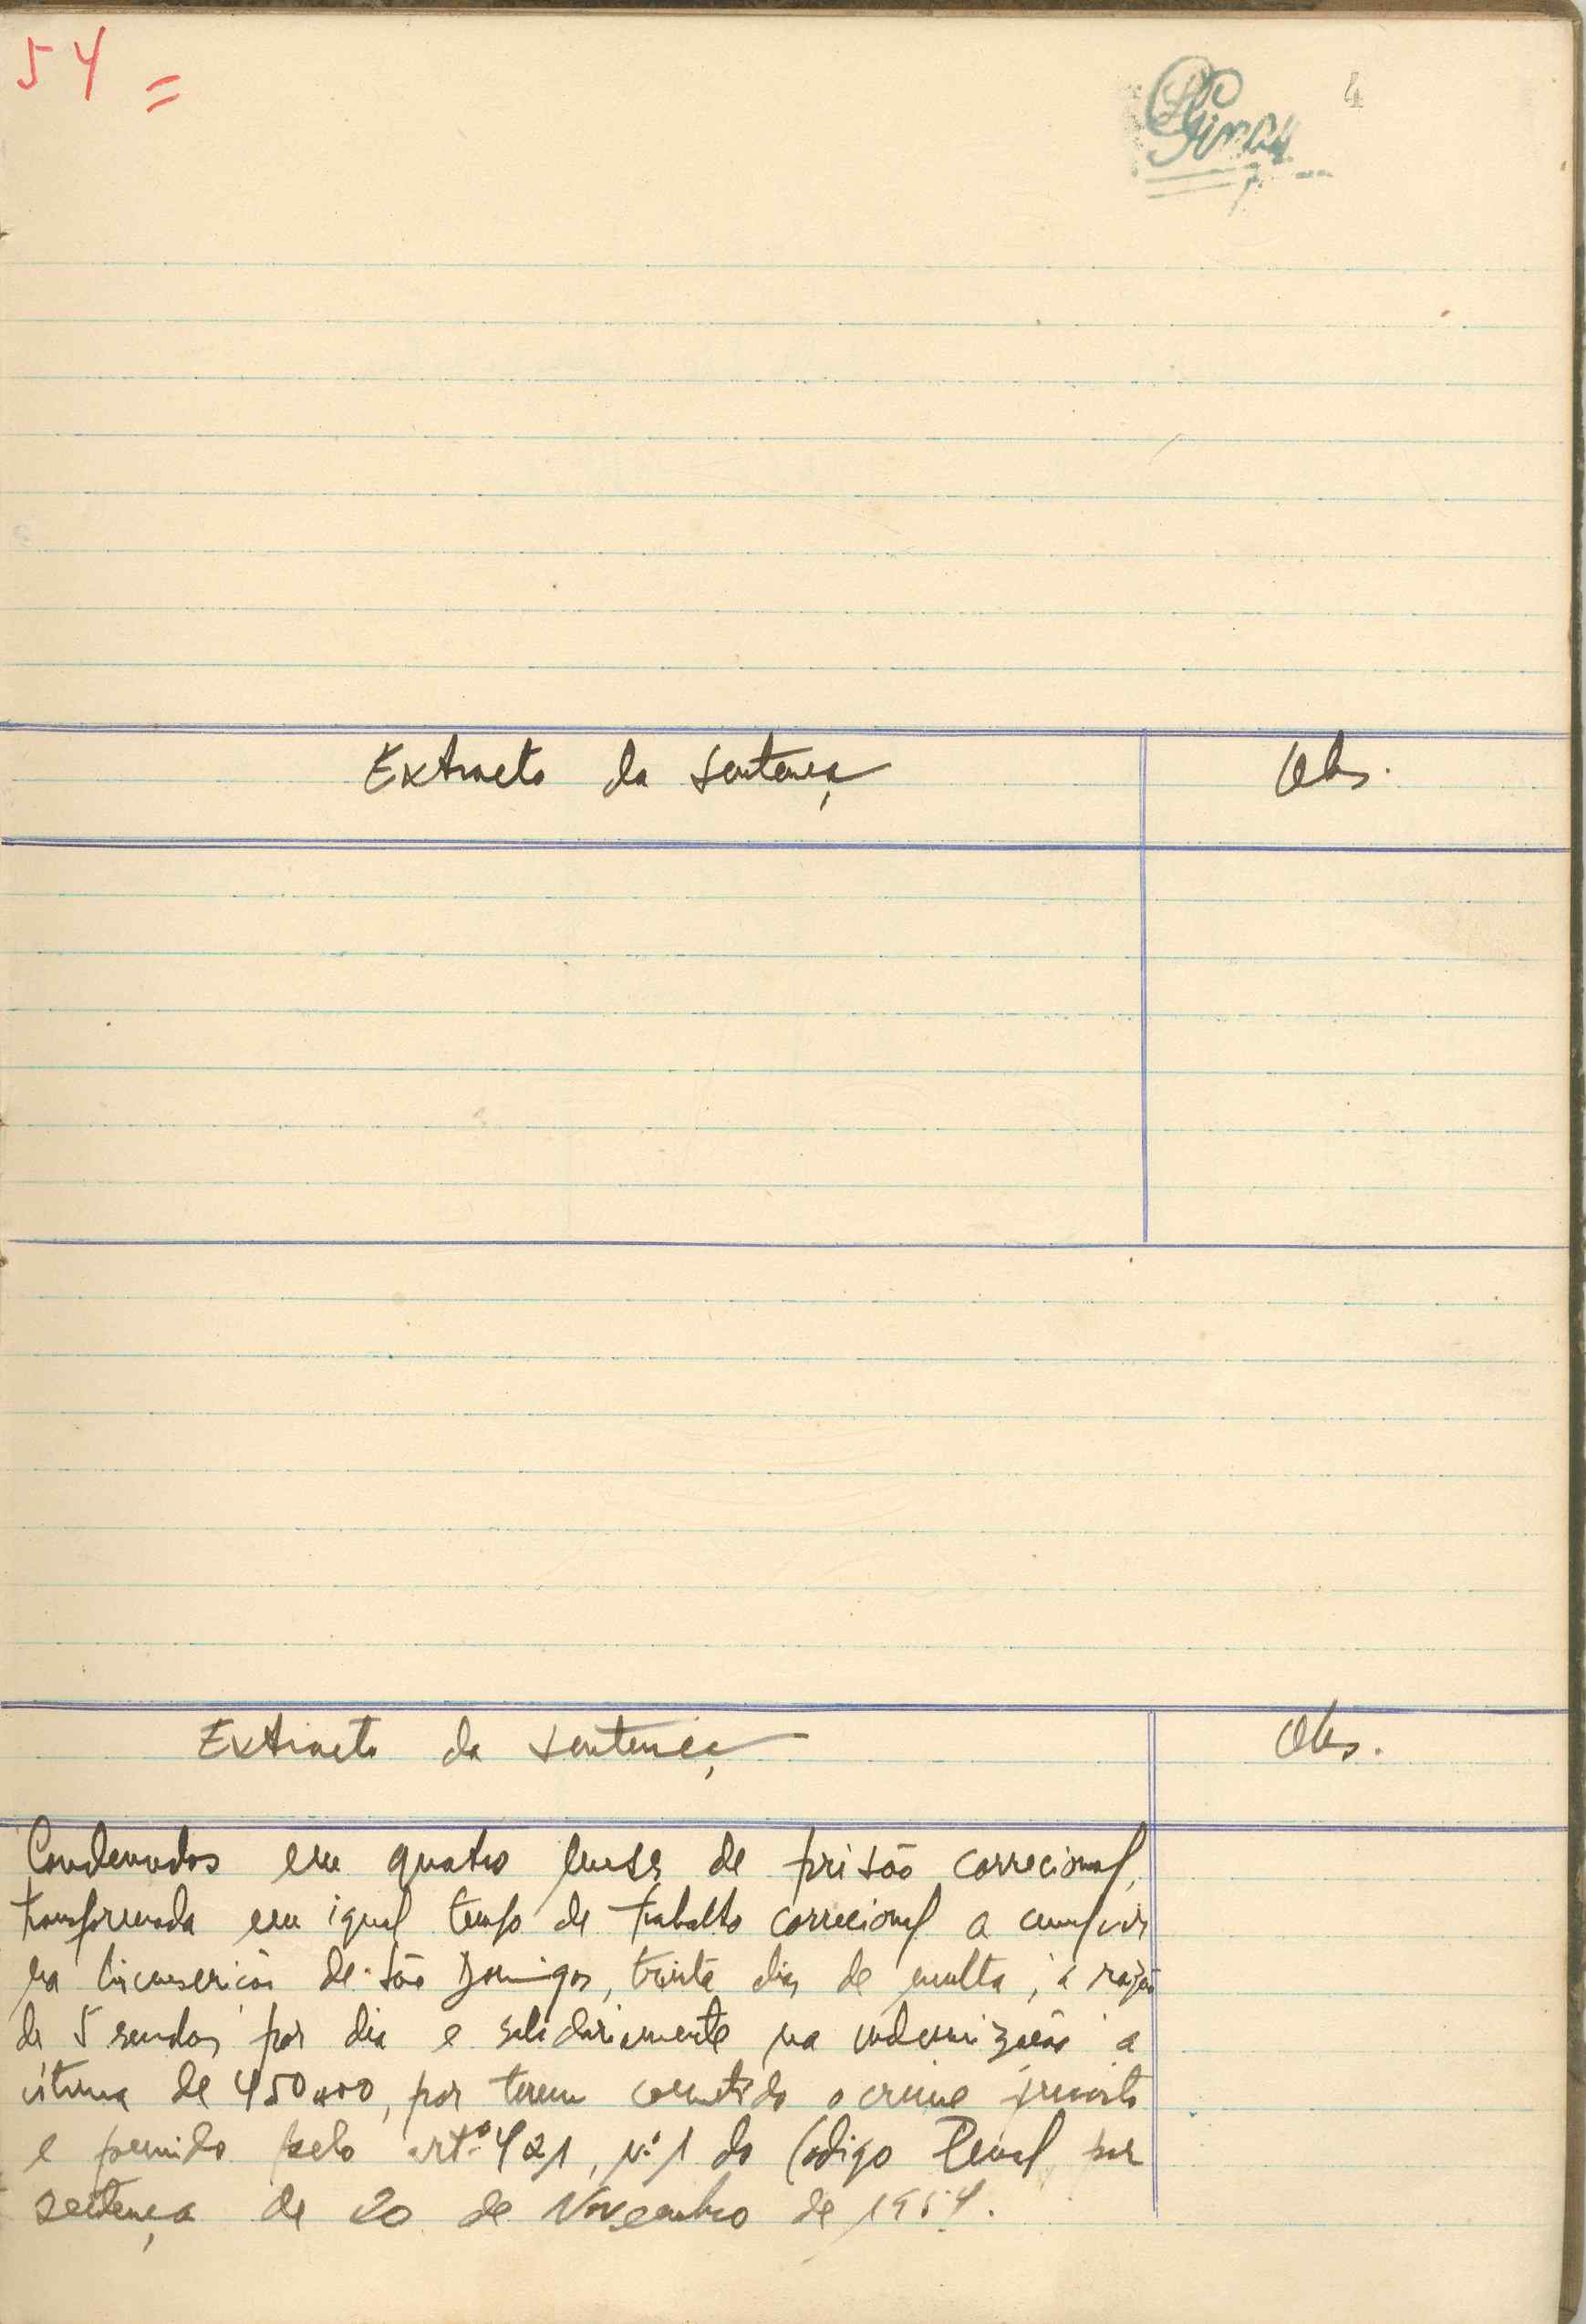 54 =
4
Extracto da sentença
Obs.
Extracto da sentença
Obs.
Condenados em quatro meses de prisão correcional,
transformada em igual tempo de trabalho correcional a cumprir
na Circunscrição de São Domingos, trinta dias de multa, à razão
de 5 escudos por dia e solidáriamente na indemnização à
vítima de 450$00, por terem cometido o crime previsto
e punido pelo artº 421, nº 1 do Código Penal por
sentença de 20 de Novembro de 1954.